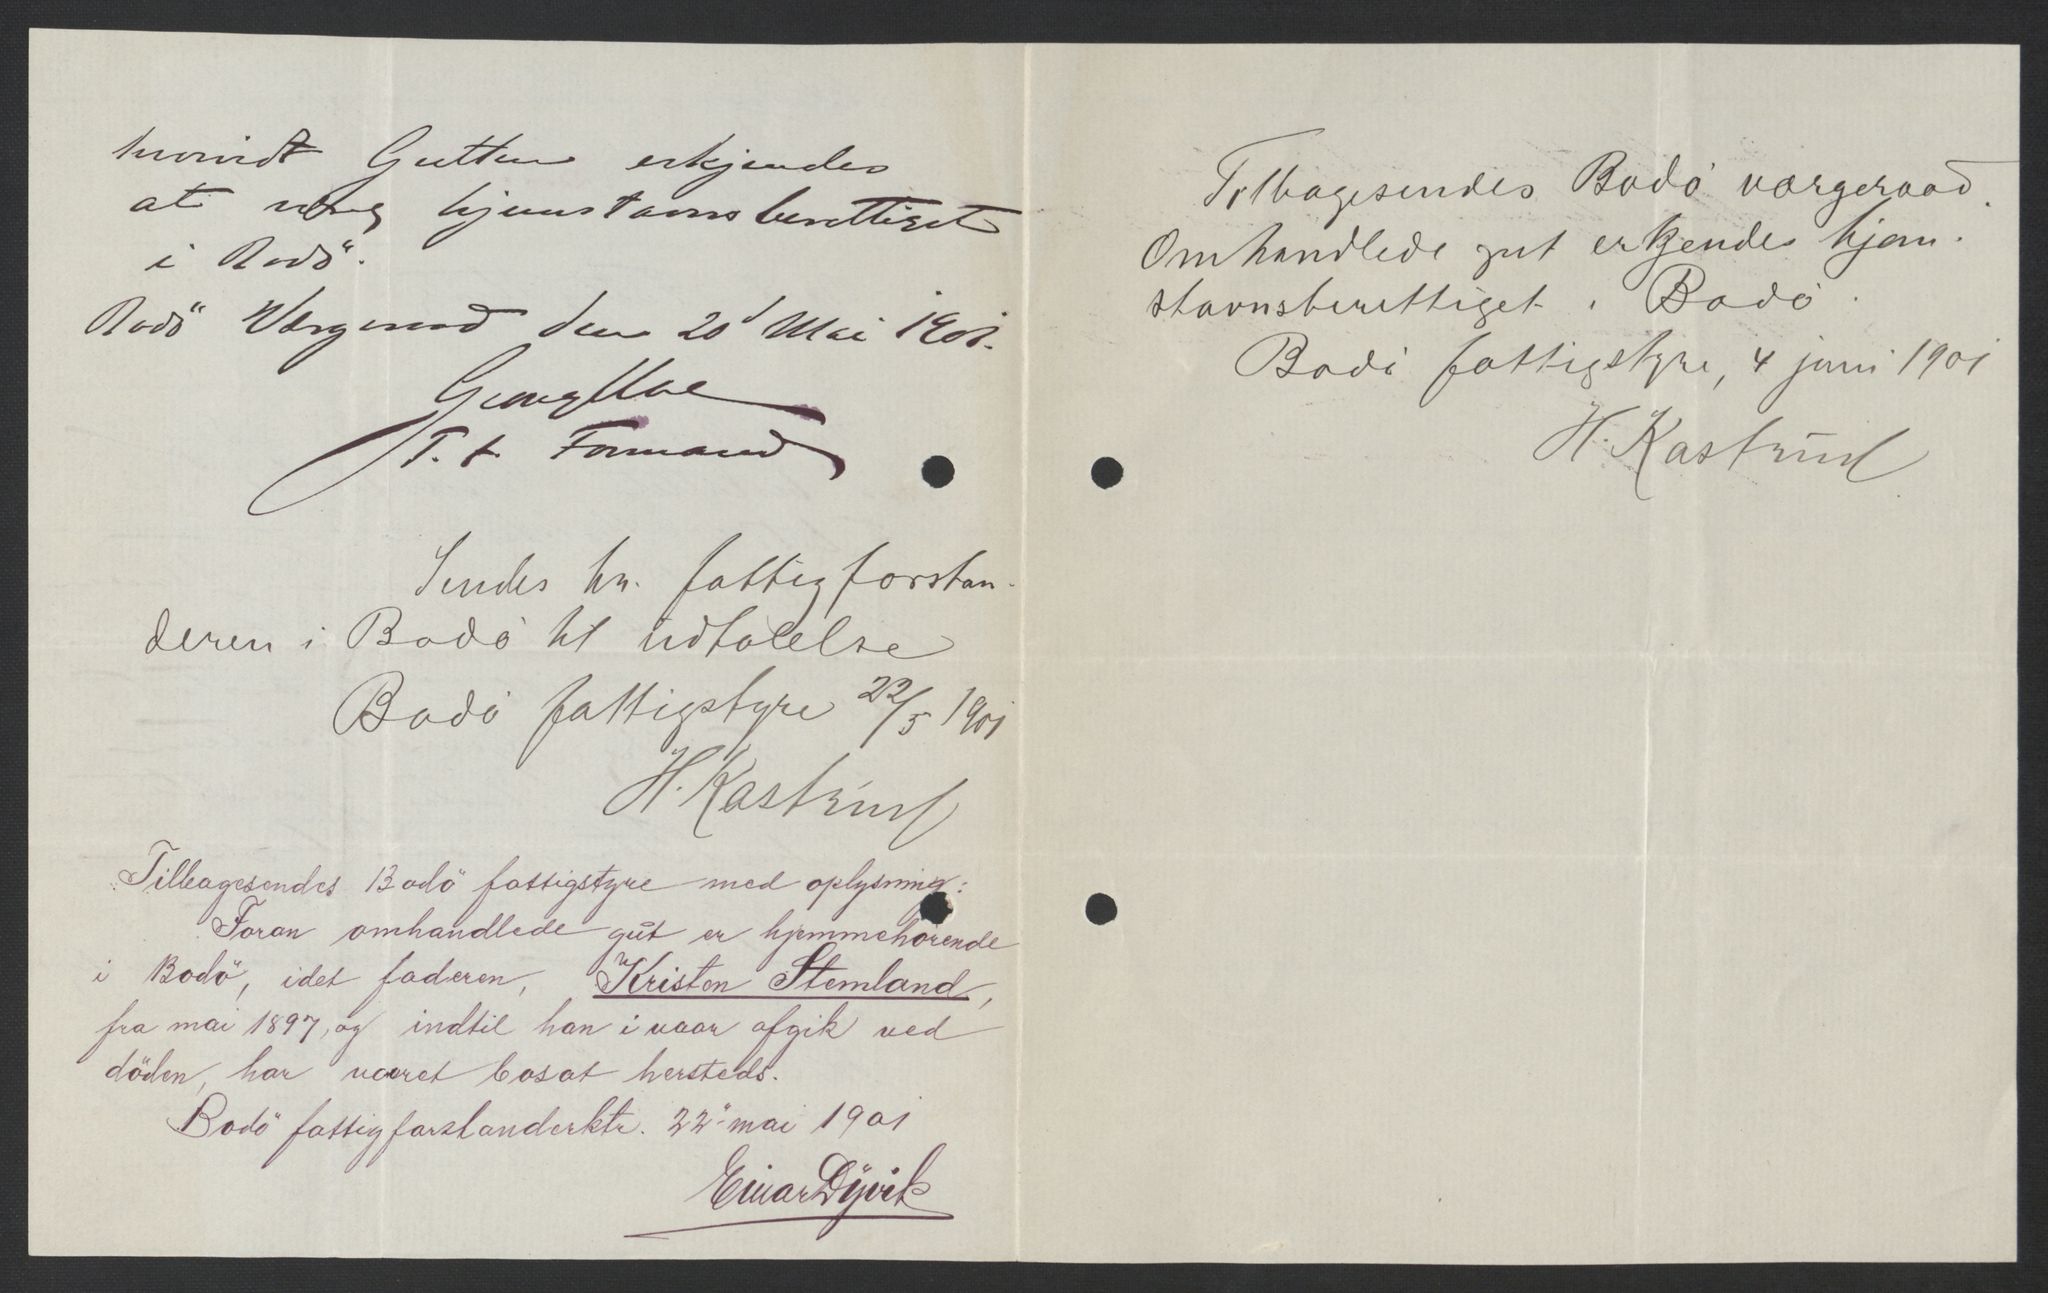 hvorvidt Gutten erkjendes
at være hjemstavnsberettiget
i Bodö.
Bodö Værgeraad den 20d Mai 1901.
Georg Moe
T. f. Formand
Sendes hr. fattigforstan-
deren i Bodö til udtalelse
Bodö fattigstyre 22/5 1901
H. Kastrud
Tilbagesendes Bodö fattigstyre med oplysning:
Foran omhandlede gut er hjemmehörende
i Bodö, idet faderen, Kristen Stemland,
fra mai 1897, og indtil han i vaar afgik ved
döden, har været bosat hersteds.
Bodö fattigforstanderktr. 22 mai 1901
Einar Dÿvik
Tilbagesendes Bodö værgeraad.
Omhandlede gut erkjendes hjem-
stavnsberettiget i Bodö.
Bodö fattigstyre, 4 juni 1901
H. Kastrud